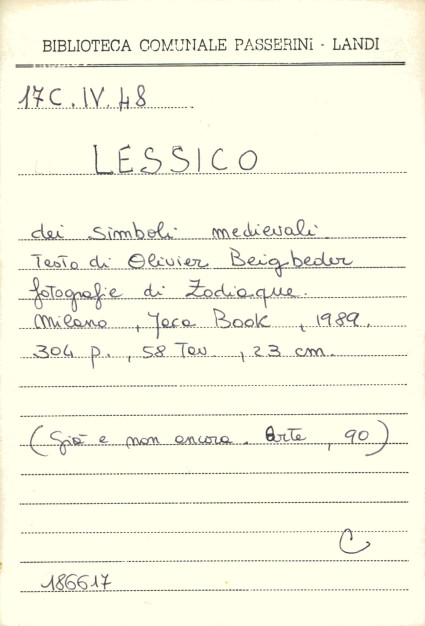 BIBLIOTECA COMUNALE PASSERINI - LANDI
17C. IV. 48
LESSICO
dei simboli medievali.
Testo di Olivier Beigbeder
fotografie di Zodiaque.
Milano, Jaca Book, 1989.
304 p., 58 Tav., 23 cm.
(Già e non ancora. Arte, 90)
C
186617